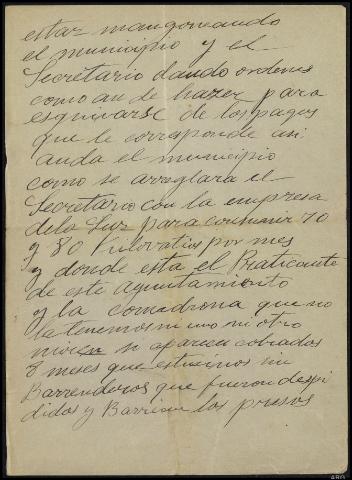 estar mangoneando
el municipio y el
Secretario dando ordenes
como an de hazer para
esquivarse de los pagos
que le corresponde asi
anda el municipio
como se arreglara el
Secretario con la empresa
dela Luz para consumir 70
y 80 Kilovatios por mes
y donde esta el Praticante
de este ayuntamiento
y la comadrona que no
la tenemos ni uno ni otro
ni aparecen cobrados
8 meses que estuvimos sin
Barrenderos que fueron despi
didos y Barrian los presos
ARG